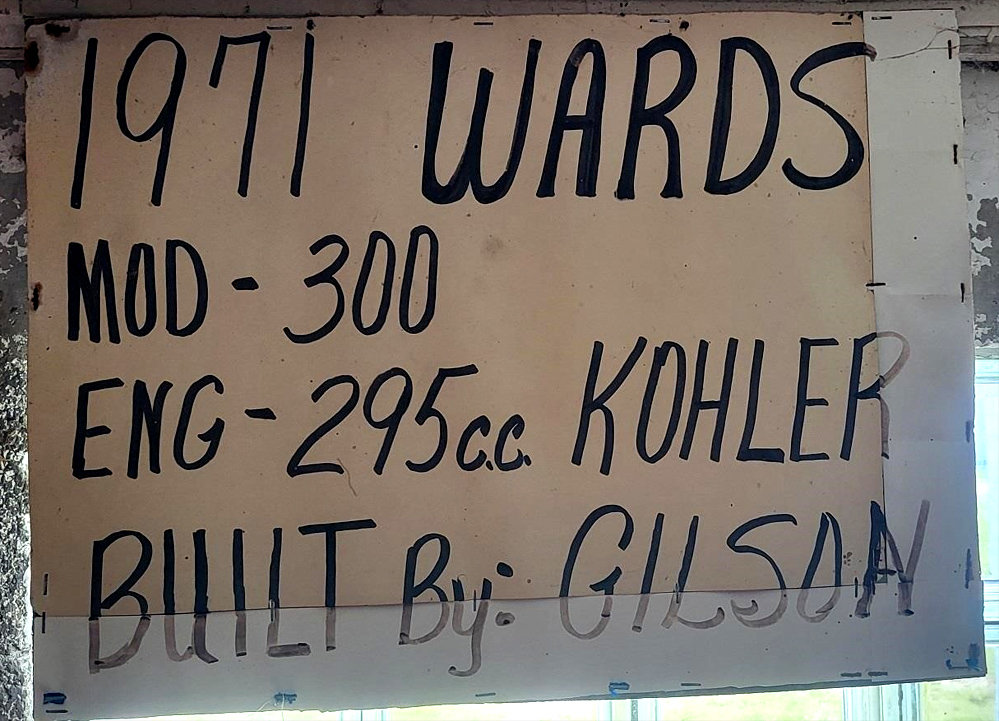 1971 WARDS
MOD - 300
ENG - 295c.c. KOHLER
BUILT By: GILSON